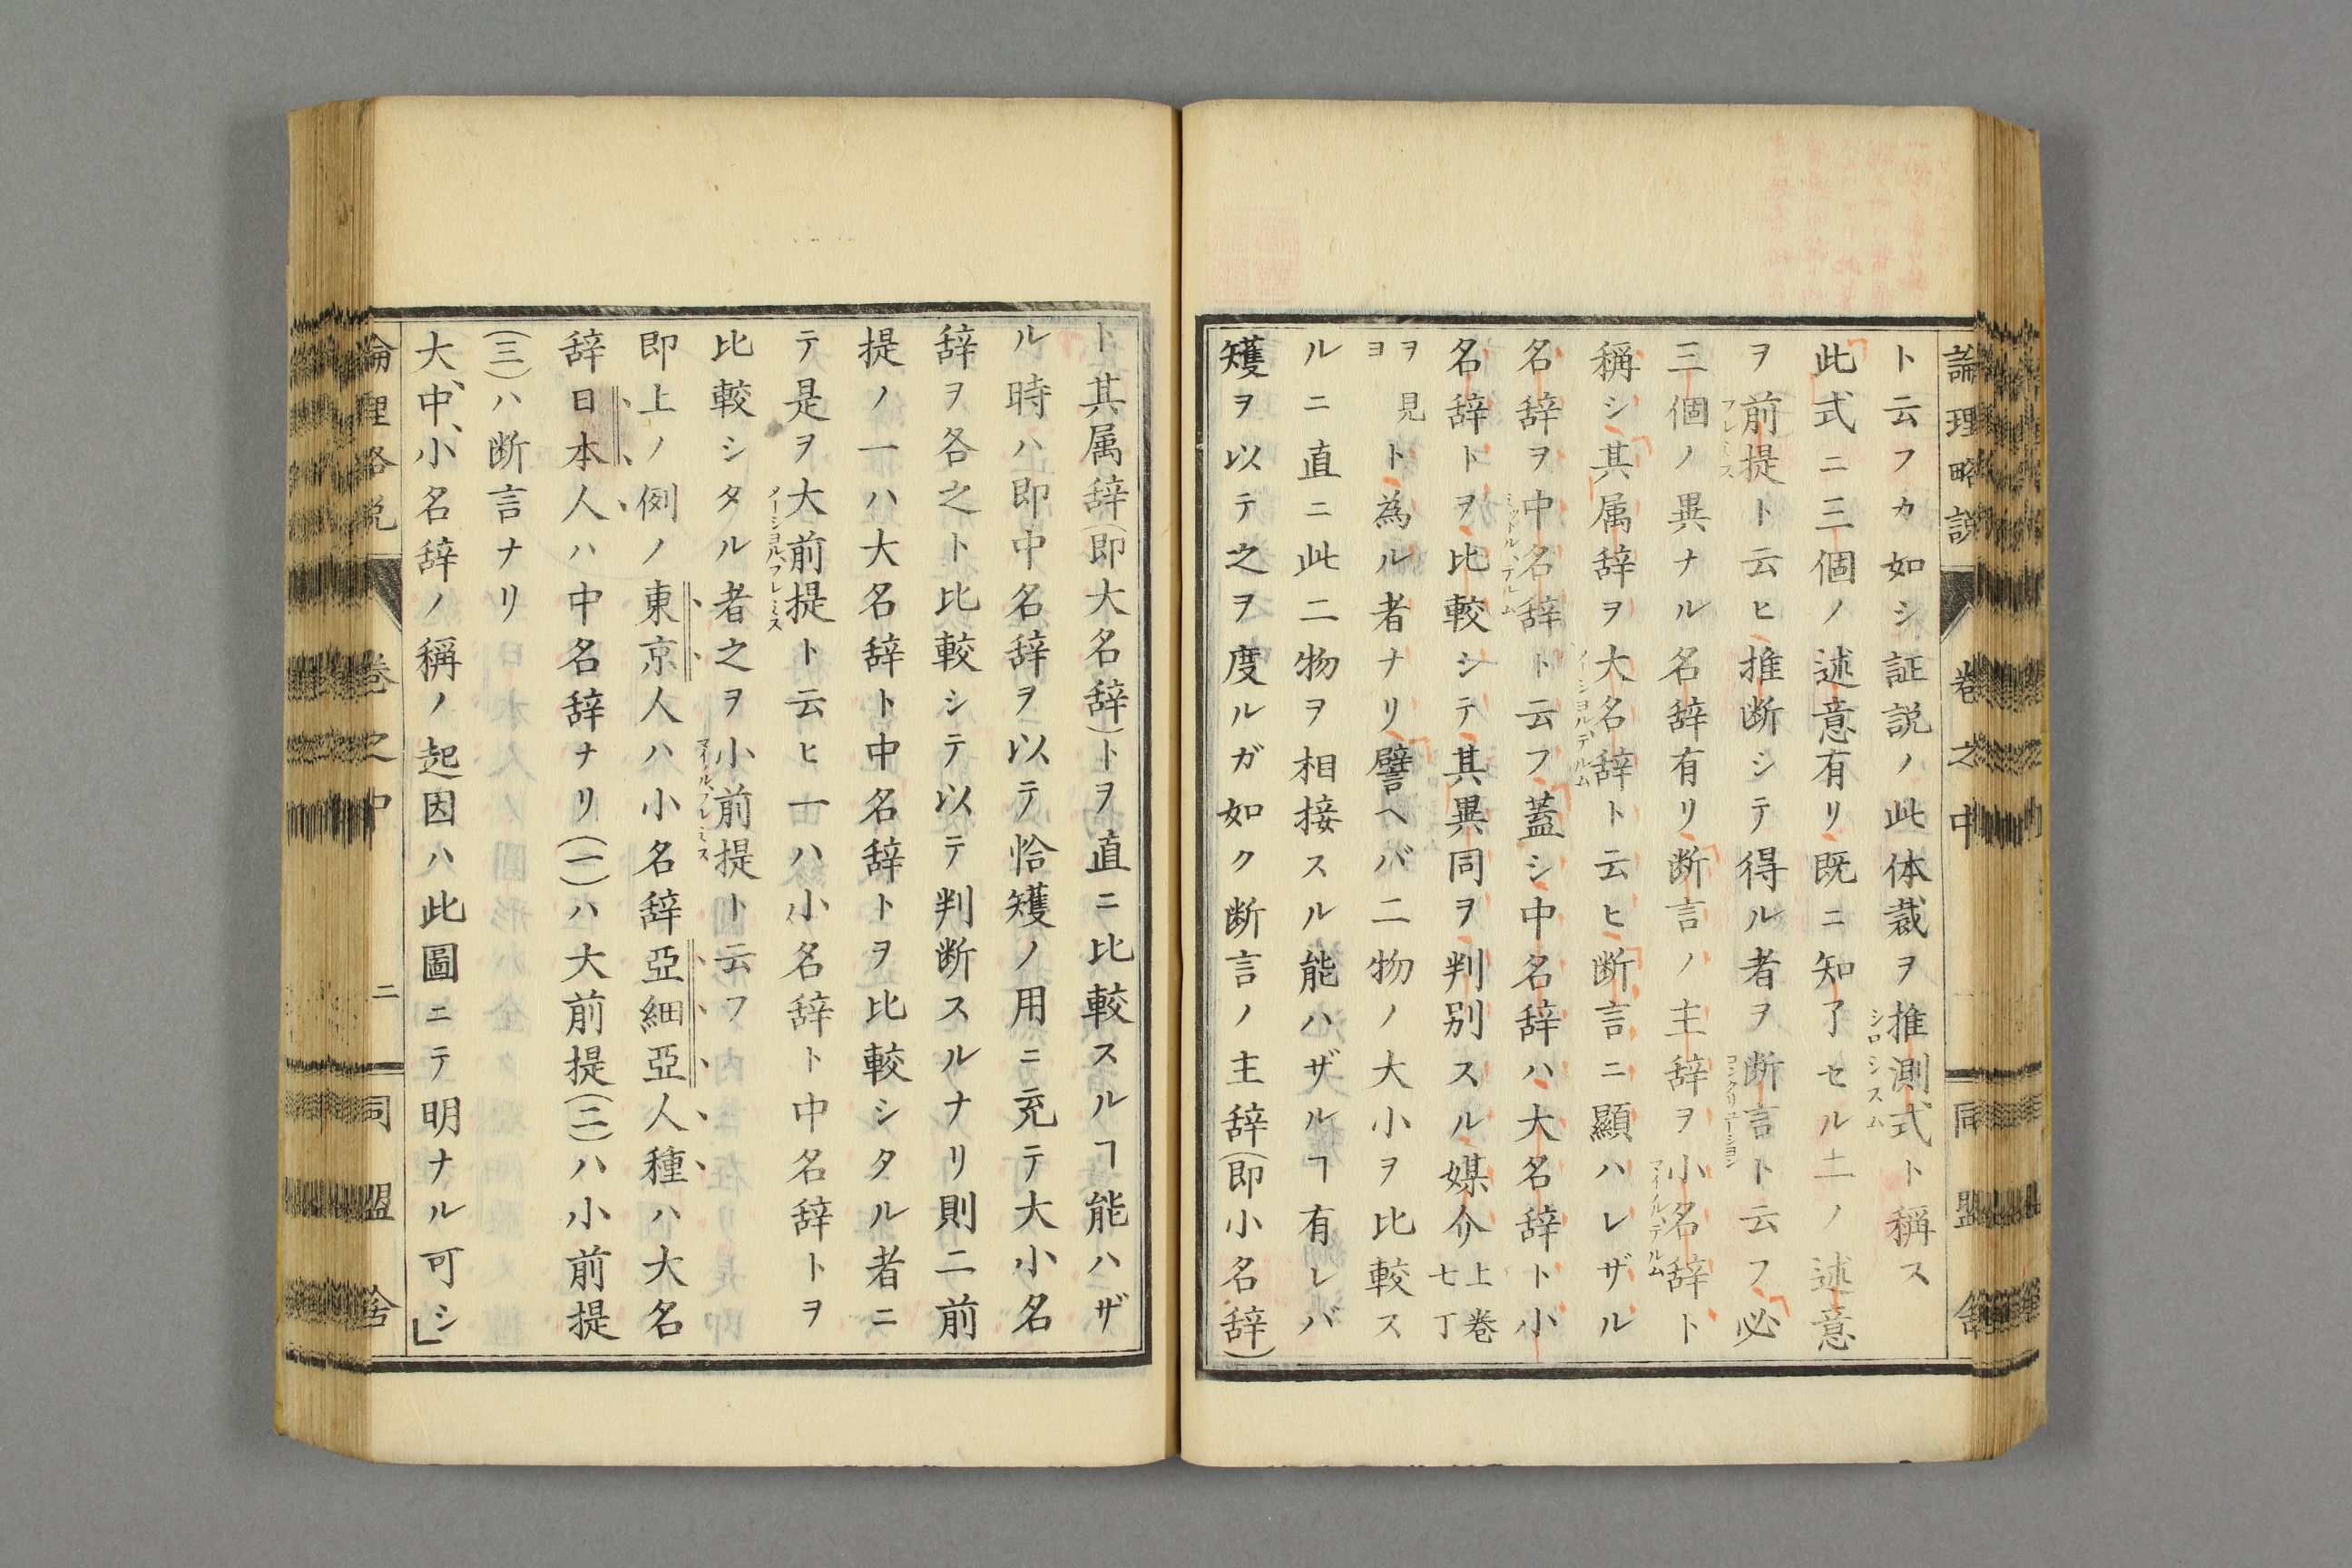 論理略説 巻之中 同盟舎
ト云フカ如シ証説ノ此体裁ヲ推測式ト稱ス
シロシスム
此式ニ三個ノ述意有リ既ニ知了セル二ノ述意
ヲ前提ト云ヒ推断シテ得ル者ヲ断言ト云フ必
プレミス
コンクリユーシヨン
三個ノ異ナル名辞有リ断言ノ主辞ヲ小名辞ト
マイノル、テルム
稱シ其属辞ヲ大名辞ト云ヒ断言ニ顯ハレザル
メーシヨル、テルム
名辞ヲ中名辞ト云フ蓋シ中名辞ハ大名辞ト小
ミッドル、テルム
名辞トヲ比較シテ其異同ヲ判别スル媒介
上巻
七丁
ヲ見
ヨ
ト為ル者ナリ譬ヘバ二物ノ大小ヲ比較ス
ルニ直ニ此二物ヲ相接スル能ハザルヿ有レバ
矱ヲ以テ之ヲ度ルガ如ク断言ノ主辞(即小名辞)
ト其属辞(即大名辞)トヲ直ニ比較スルヿ能ハザ
ル時ハ即中名辞ヲ以テ恰矱ノ用ニ充テ大小名
辞ヲ各之ト比較シテ以テ判断スルナリ則二前
提ノ一ハ大名辞ト中名辞トヲ比較シタル者ニ
テ是ヲ大前提ト云ヒ一ハ小名辞ト中名辞トヲ
メーシヨル、プレミス
比較シタル者之ヲ小前提ト云フ
マイノル、プレミス
即上ノ例ノ東京人ハ小名辞亞細亞人種ハ大名
辞日本人ハ中名辞ナリ(一)ハ大前提(二)ハ小前提
(三)ハ断言ナリ
大、中、小名辞ノ稱ノ起因ハ此圖ニテ明ナル可シ」
論理略説 巻之中 二 同盟舎